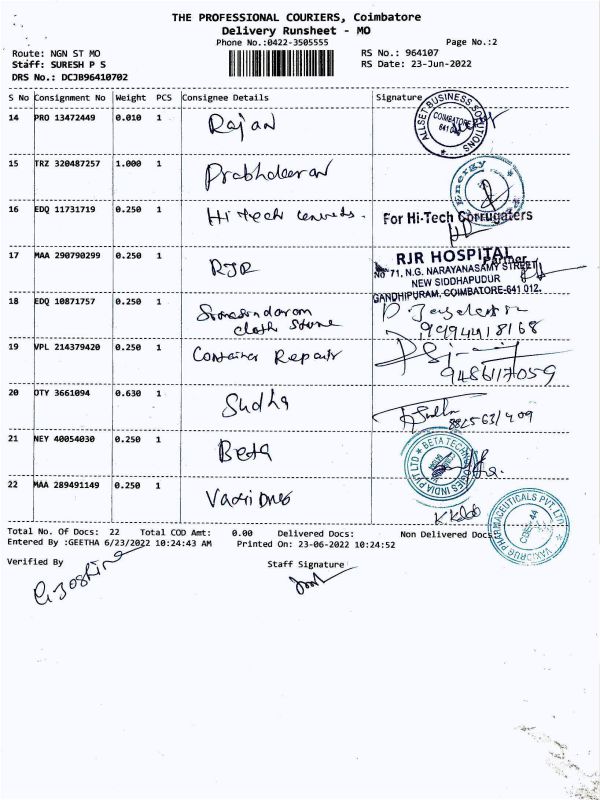 THE PROFESSIONAL COURIERS, Coimbatore
Delivery Runsheet - MO
Phone No.:0422-3505555
Page No.:2
Route: NGN ST MO
RS No.: 964107
Staff: SURESH P S
RS Date: 23-Jun-2022
DRS No.: DCJB96410702
S No Consignment No Weight PCS Consignee Details Signature
14 PRO 13472449 0.010 1 Rajan
ALLSET BUSINESS SOLUTIONS
COIMBATORE
15 TRZ 320487257 1.000 1 Prabhakaran
Energy
16 EDQ 11731719 0.250 1 Hi Tech
For Hi-Tech Corrugaters
Partner
17 MAA 290790299 0.250 1 RJR
RJR HOSPITAL
No 71, N.G. NARAYANASAMY STREET
NEW SIDDHAPUDUR
GANDHIPURAM, COIMBATORE-641 012.
18 EDQ 10871757 0.250 1
cloth store
9994418168
19 VPL 214379420 0.250 1 Container Repair
9486117059
20 OTY 3661094 0.630 1 Sudha
21 NEY 40054030 0.250 1 Beta
BETA TECHNOLOGIES INDIA PVT LTD
22 MAA 289491149 0.250 1
VAXIDRUG PHARMACEUTICALS PVT.LTD
Total No. Of Docs: 22 Total COD Amt: 0.00 Delivered Docs: Non Delivered Docs:
Entered By :GEETHA 6/23/2022 10:24:43 AM Printed On: 23-06-2022 10:24:52
Verified By Staff Signature